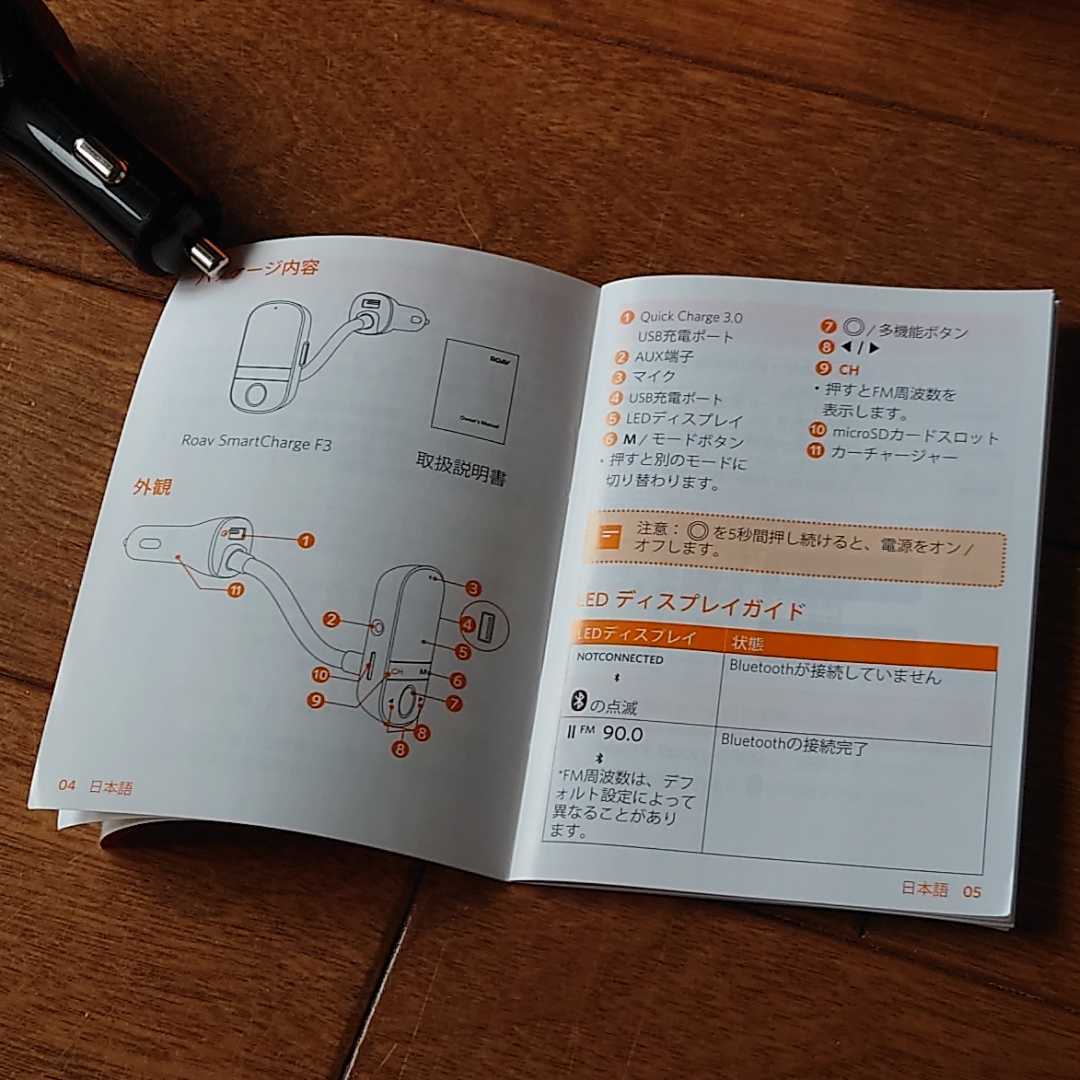 ージ内容
ROAV
Owner's Manual
Roav SmartCharge F3
取扱説明書
外観
1
11
2
3
4
5
10
CH
M
6
9
7
8
8
04 日本語
1 Quick Charge 3.0
USB充電ポート
2 AUX端子
3 マイク
4 USB充電ポート
5 LEDディスプレイ
6 M / モードボタン
・押すと別のモードに
切り替わります。
7 ◎ / 多機能ボタン
8 ◀ / ▶
9 CH
・押すとFM周波数を
表示します。
10 microSDカードスロット
11 カーチャージャー
注意： ◎ を5秒間押し続けると、電源をオン /
オフします。
LED ディスプレイガイド
LEDディスプレイ 状態
NOTCONNECTED
の点滅
Bluetoothが接続していません
II FM 90.0
*FM周波数は、デフ
ォルト設定によって
異なることがあり
ます。
Bluetoothの接続完了
日本語 05